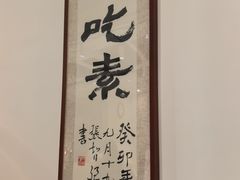 吃素
癸卯年
九月十九
張
書